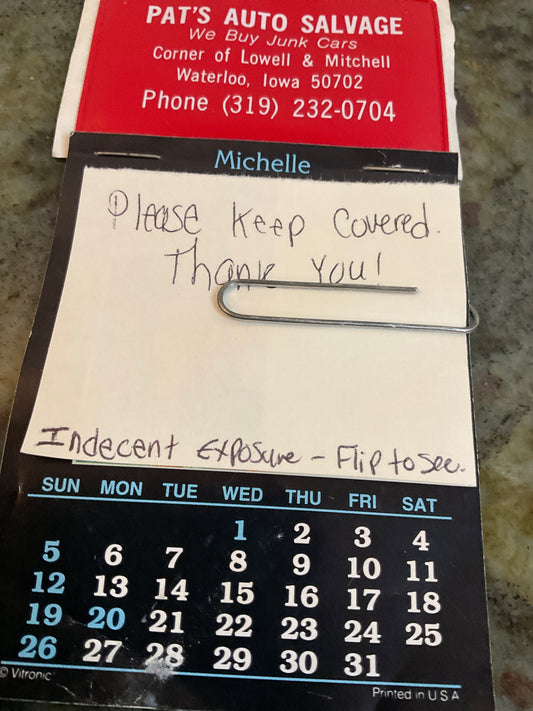 PAT'S AUTO SALVAGE
We Buy Junk Cars
Corner of Lowell & Mitchell
Waterloo, Iowa 50702
Phone (319) 232-0704
Michelle
Please Keep Covered.
Thank You!
Indecent Exposure - Flip to see.
SUN MON TUE WED THU FRI SAT
1 2 3 4
5 6 7 8 9 10 11
12 13 14 15 16 17 18
19 20 21 22 23 24 25
26 27 28 29 30 31
© Vitronic Printed in USA